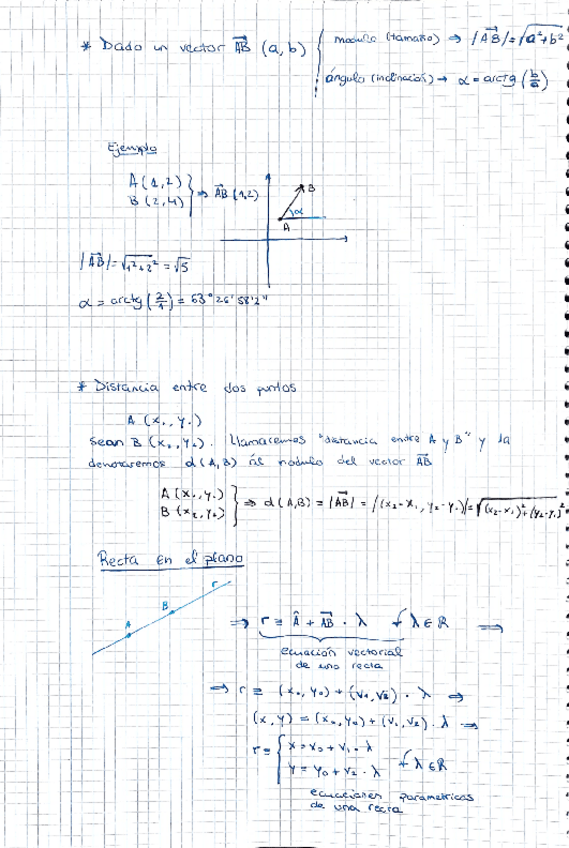 * Dado un vector AB (a, b) { modulo (tamaño) ⇒ |AB| = √a²+b²
ángulo (inclinación) → α = arctg (b/a)
Ejemplo
A (1,2)
B (2,4) } ⇒ AB (1,2)
B
α
A
|AB| = √1²+2² = √5
α = arctg (2/1) = 63° 26' 58'2"
* Distancia entre dos puntos
A (x₁, y₁)
Sean B (x₂, y₂). Llamaremos "distancia entre A y B" y la
denotaremos d(A,B) al modulo del vector AB
A (x₁, y₁)
B (x₂, y₂) } ⇒ d(A,B) = |AB| = |(x₂-x₁, y₂-y₁)| = √(x₂-x₁)²+(y₂-y₁)²
Recta en el plano
r
B
A
⇒ r ≡ A + AB · λ ∀ λ ∈ R ⇒
ecuación vectorial
de una recta
⇒ r ≡ (x₀, y₀) + (v₁, v₂) · λ ⇒
(x, y) = (x₀, y₀) + (v₁, v₂) · λ ⇒
r ≡ { x = x₀ + v₁ · λ
y = y₀ + v₂ · λ ∀ λ ∈ R
ecuaciones parametricas
de una recta